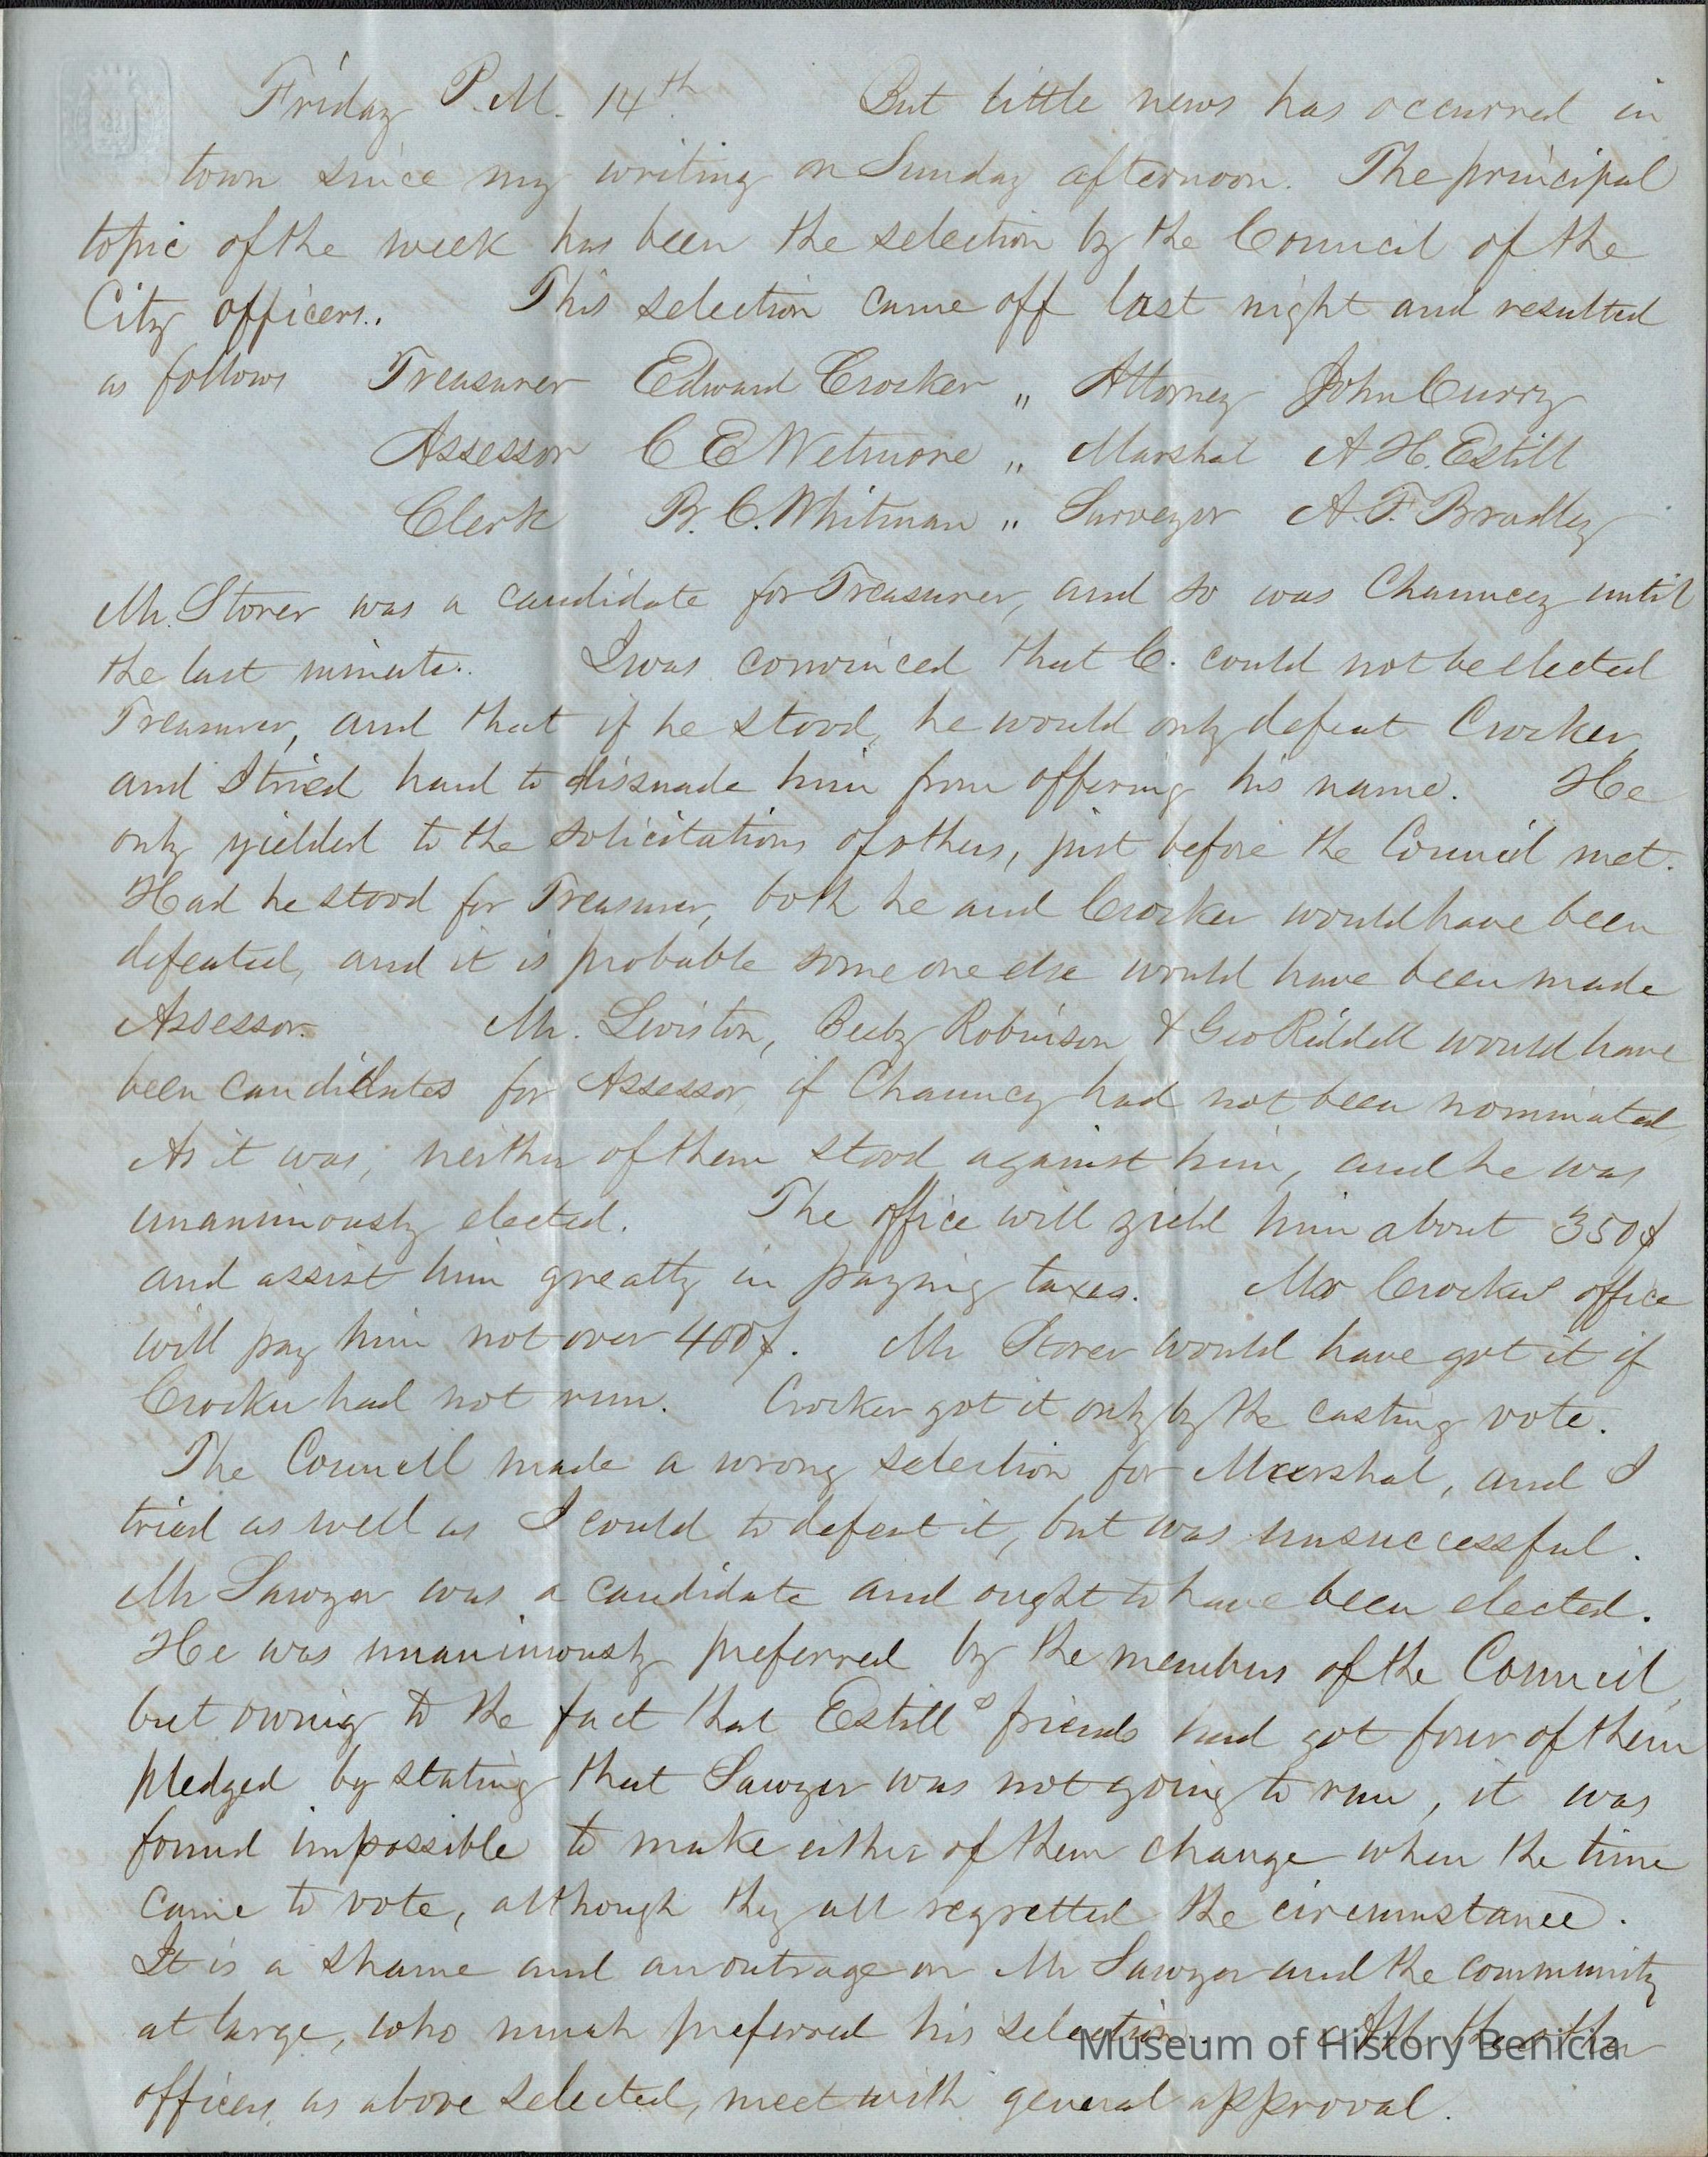 Friday P.M. 14th But little news has occurred in
town since my writing on Sunday afternoon. The principal
topic of the week has been the selection by the Council of the
City officers. This selection came off last night and resulted
as follows Treasurer Edward Crocker „ Attorney John Curry
Assessor C E Wetmore „ Marshal A H. Estill
Clerk B. C. Whitman „ Surveyor A. F. Bradley
Mr. Storer was a candidate for Treasurer, and so was Chauncey until
the last minute. I was convinced that C. could not be elected
Treasurer, and that if he stood, he would only defeat Crocker,
and I tried hard to dissuade him from offering his name. He
only yielded to the solicitations of others, just before the Council met.
Had he stood for Treasurer, both he and Crocker would have been
defeated, and it is probable some one else would have been made
Assessor. Mr. Leviston, Beeby Robinson & Geo Riddell would have
been candidates for Assessor, if Chauncey had not been nominated
As it was, neither of them stood against him, and he was
unanimously elected. The office will yield him about 350$
and assist him greatly in paying taxes. Mr Crockers office
will pay him not over 400$. Mr Storer would have got it if
Crocker had not run. Crocker got it only by the casting vote.
The Council made a wrong selection for Marshal, and I
tried as well as I could to defeat it, but was unsuccessful.
Mr Sawyer was a candidate and ought to have been elected.
He was unanimously preferred by the members of the Council,
but owing to the fact that Estills friends had got four of them
pledged by stating that Sawyer was not going to run, it was
found impossible to make either of them change when the time
came to vote, although they all regretted the circumstance.
It is a shame and an outrage on Mr Sawyer and the community
at large, who much preferred his selection. All the other
officers as above selected, meet with general approval.
Museum of History Benicia